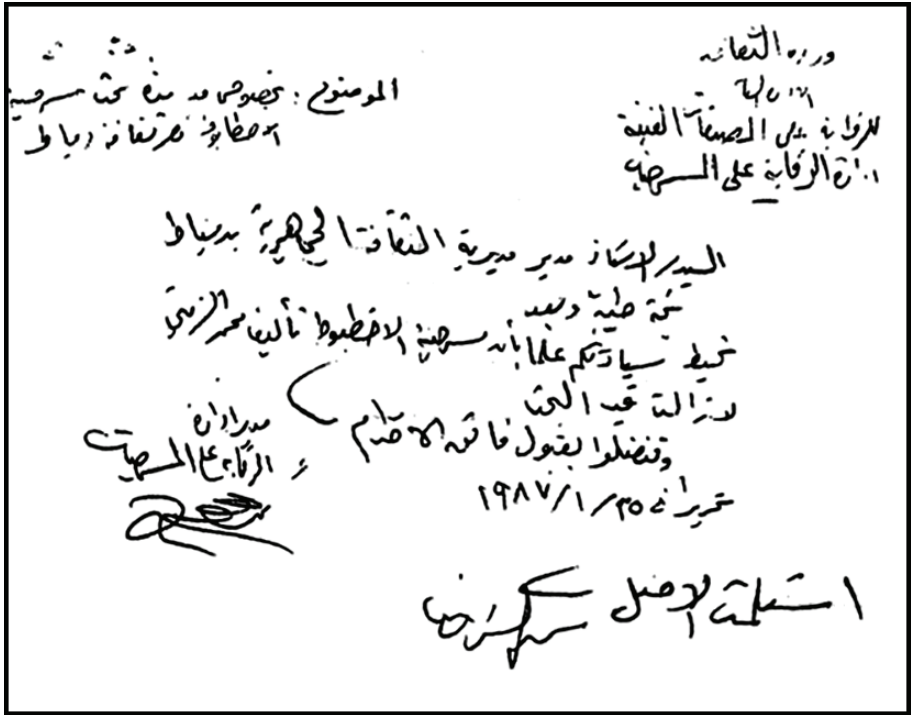 وزارة الثقافة
الإدارة العامة
للرقابة على المصنفات الفنية
إدارة الرقابة على المسرحيات
الموضوع : بخصوص مد مدة بحث مسرحية
الاخطبوط قصر ثقافة دمياط
السيد الاستاذ مدير مديرية الثقافة الجماهيرية بدمياط
تحية طيبة وبعد
نحيط سيادتكم علما بأن مسرحية الاخطبوط تأليف محمد الزيني
لازالت قيد البحث
وتفضلوا بقبول فائق الاحترام
تحريرا في ٢٥/١/١٩٨٧
مدير إدارة
الرقابة على المسرحيات
استلمت الاصل